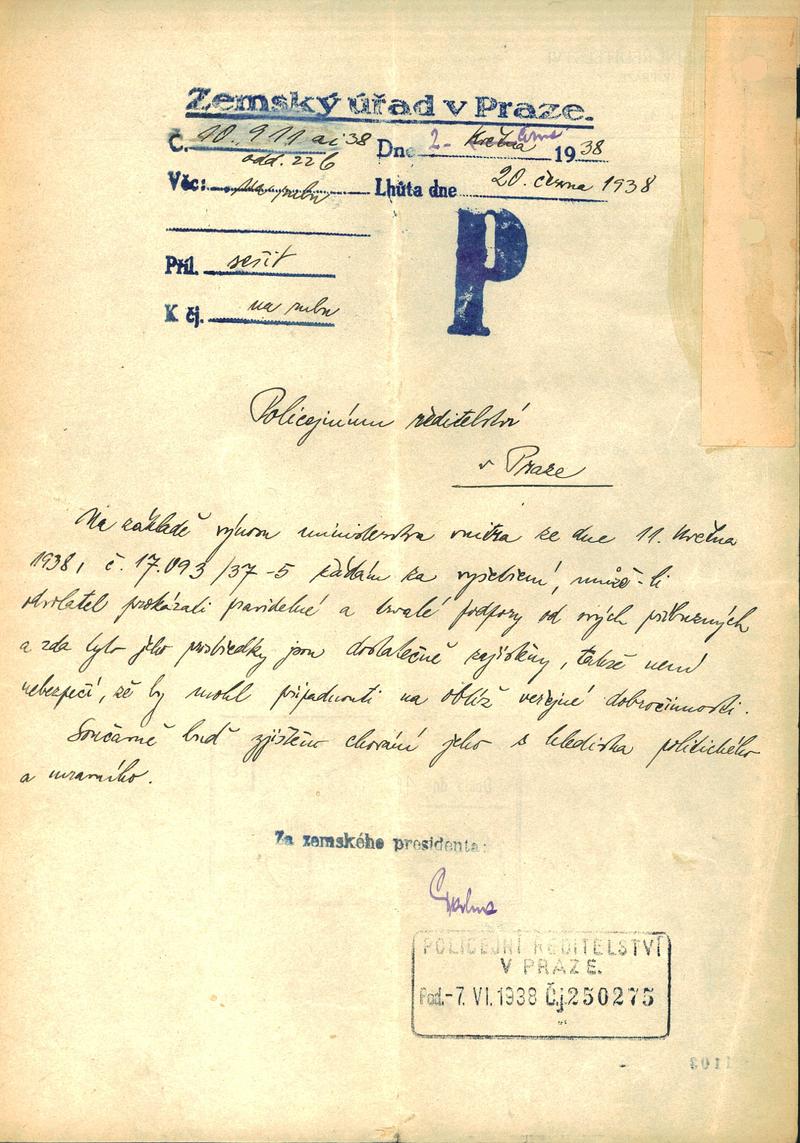 Zemský úřad v Praze.
Č. 10.911 ai 38 Dne 2. června 1938
odd. 22b
Věc: Na rubu Lhůta dne 20. června 1938
P
Příl. sešit
K čj. na rubu
Policejnímu ředitelství
v Praze
Na základě výnosu ministerstva vnitra ze dne 11. května
1938, č. 17.093/37-5 žádám za vyšetření, může-li
odvolatel prokázati pravidelné a trvalé podpory od svých příbuzných
a zda tyto jeho prostředky jsou dostatečně zajištěny, takže není
nebezpečí, že by mohl připadnouti na obtíž veřejné dobročinnosti.
Současně buď zjištěno chování jeho s hlediska politického
a mravního.
Za zemského presidenta:
POLICEJNÍ ŘEDITELSTVÍ
V PRAZE.
Pod. -7. VI. 1938 Č.j. 250275